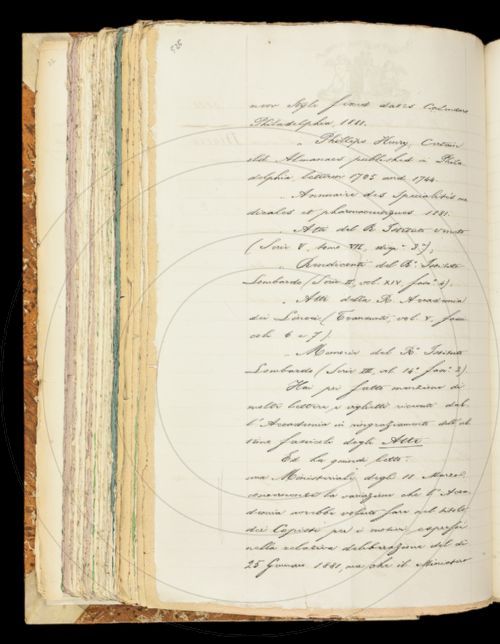 new Style fixed dates Calendars
Philadelphia, 1881.
" Phillips Henry, Certain
old Almanacs published in Phila-
delphia between 1705 and 1744.
" Annuaire des Specialités me-
dicales et pharmaceutiques 1881.
" Atti del R. Istituto Veneto
(Serie V, tomo VII, disp. 3ª),
" Rendiconti del R. Istituto
Lombardo (Serie II, vol. XIV fasc. 4).
" Atti della R. Accademia
dei Lincei (Transunti, vol. V, fasci-
coli 6 e 7)
" Memorie del R. Istituto
Lombardo (Serie III, vol. 14 fasc. 2).
Hai poi fatta menzione di
molte lettere e viglietti ricevuti dal-
l'Accademia in ringraziamento del
fascicoli degli Atti.
Ed ha quindi letto:
una Ministeriale degli 11 Marzo,
concernente la variazione che l'Acca-
demia avrebbe voluto fare nel titolo
dei Capitoli per i motivi espressi
nella relativa deliberazione del dì
25 Gennaio 1881, ma che il Ministero